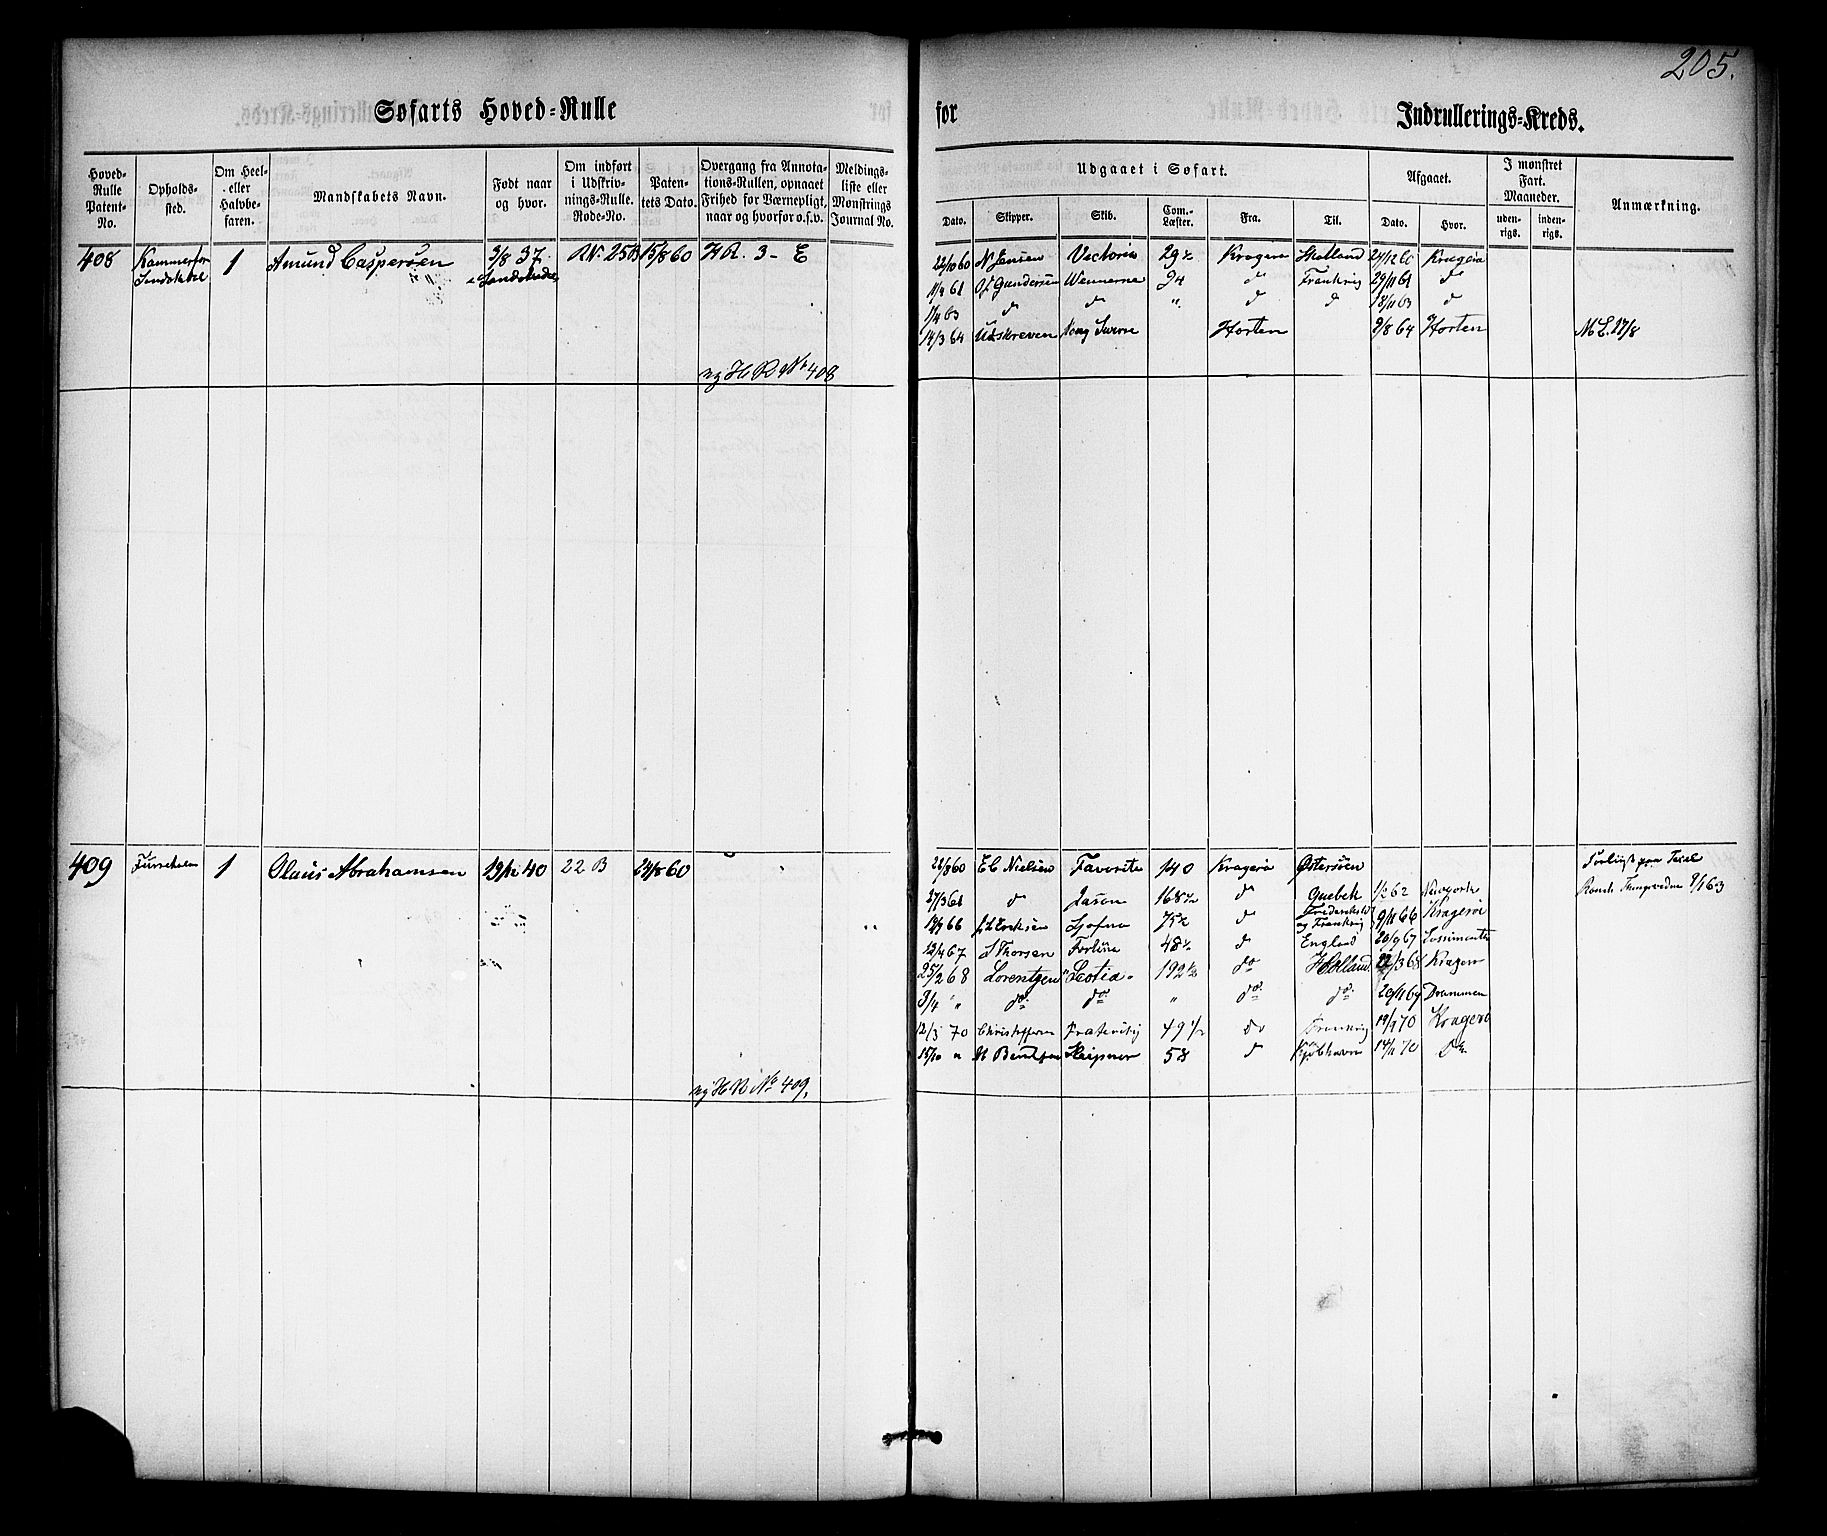 205.
Søfarts Hoved-Rulle
for Indrullerings-Kreds.
Hoved-Rulle Patent-No.
Opholds-sted.
Om Heel- eller Halvbe-faren.
Mandskabets Navn.
Født naar og hvor.
Om indført i Udskriv-nings-Rulle. Rode-No.
Paten-tets Dato.
Overgang fra Annota-tions-Rullen, opnaaet Frihed for Værnepligt, naar og hvorfor o.s.v.
Meldings-liste eller Mønstrings Journal No.
Udgaaet i Søfart.
Dato. Skipper. Skib. Com.-Læster. Fra. Til.
Afgaaet.
Dato. Hvor.
I mønstret Fart. Maaneder.
uden-rigs. inden-rigs.
Anmærkning.
408 1 Amund Caspersen 3/8 37 No. 25 B 15/8 60 H R. 3 - E
Sandøkedel
22/10 60 N Jensen Victoria 29½ Kragerø Holland 24/12 60 Kragerø
11/4 61 Gundersen 94 d Frankrig 29/11 61 d
1/4 63 d d " d d 18/11 63 d
14/3 64 Udskreven Horten 9/8 64 Horten M L. 17/8
ny H R No 408
409 Furuholm 1 Olaus Abrahamsen 19/12 40 22 B 24/8 60
28/8 60 E C Nielsen Favorite 140 Kragerø Østersøen
27/3 61 d Jason 168½ d Quebek 1/2 62 Newport
Forliigt paa Texel
9/1 63
66 J L Eriksen 75½ d Frederiksld og Frankrig 9/11 66 Kragerø
12/4 67 S Thorsen Fortuna 48½ d England 20/9 67
25/2 68 Lorentzen Scotia 192½ do Holland 3 68 Kragerø
3/4 " do do " do do 20/11 69 Drammen
12/3 70 Christoffersen 49 1/2 do Frankrig 19/9 70 Kragerø
15/10 " Bentsen Sleipner 58 d Kjøbhavn 14/11 70 do
ny H R No 409.